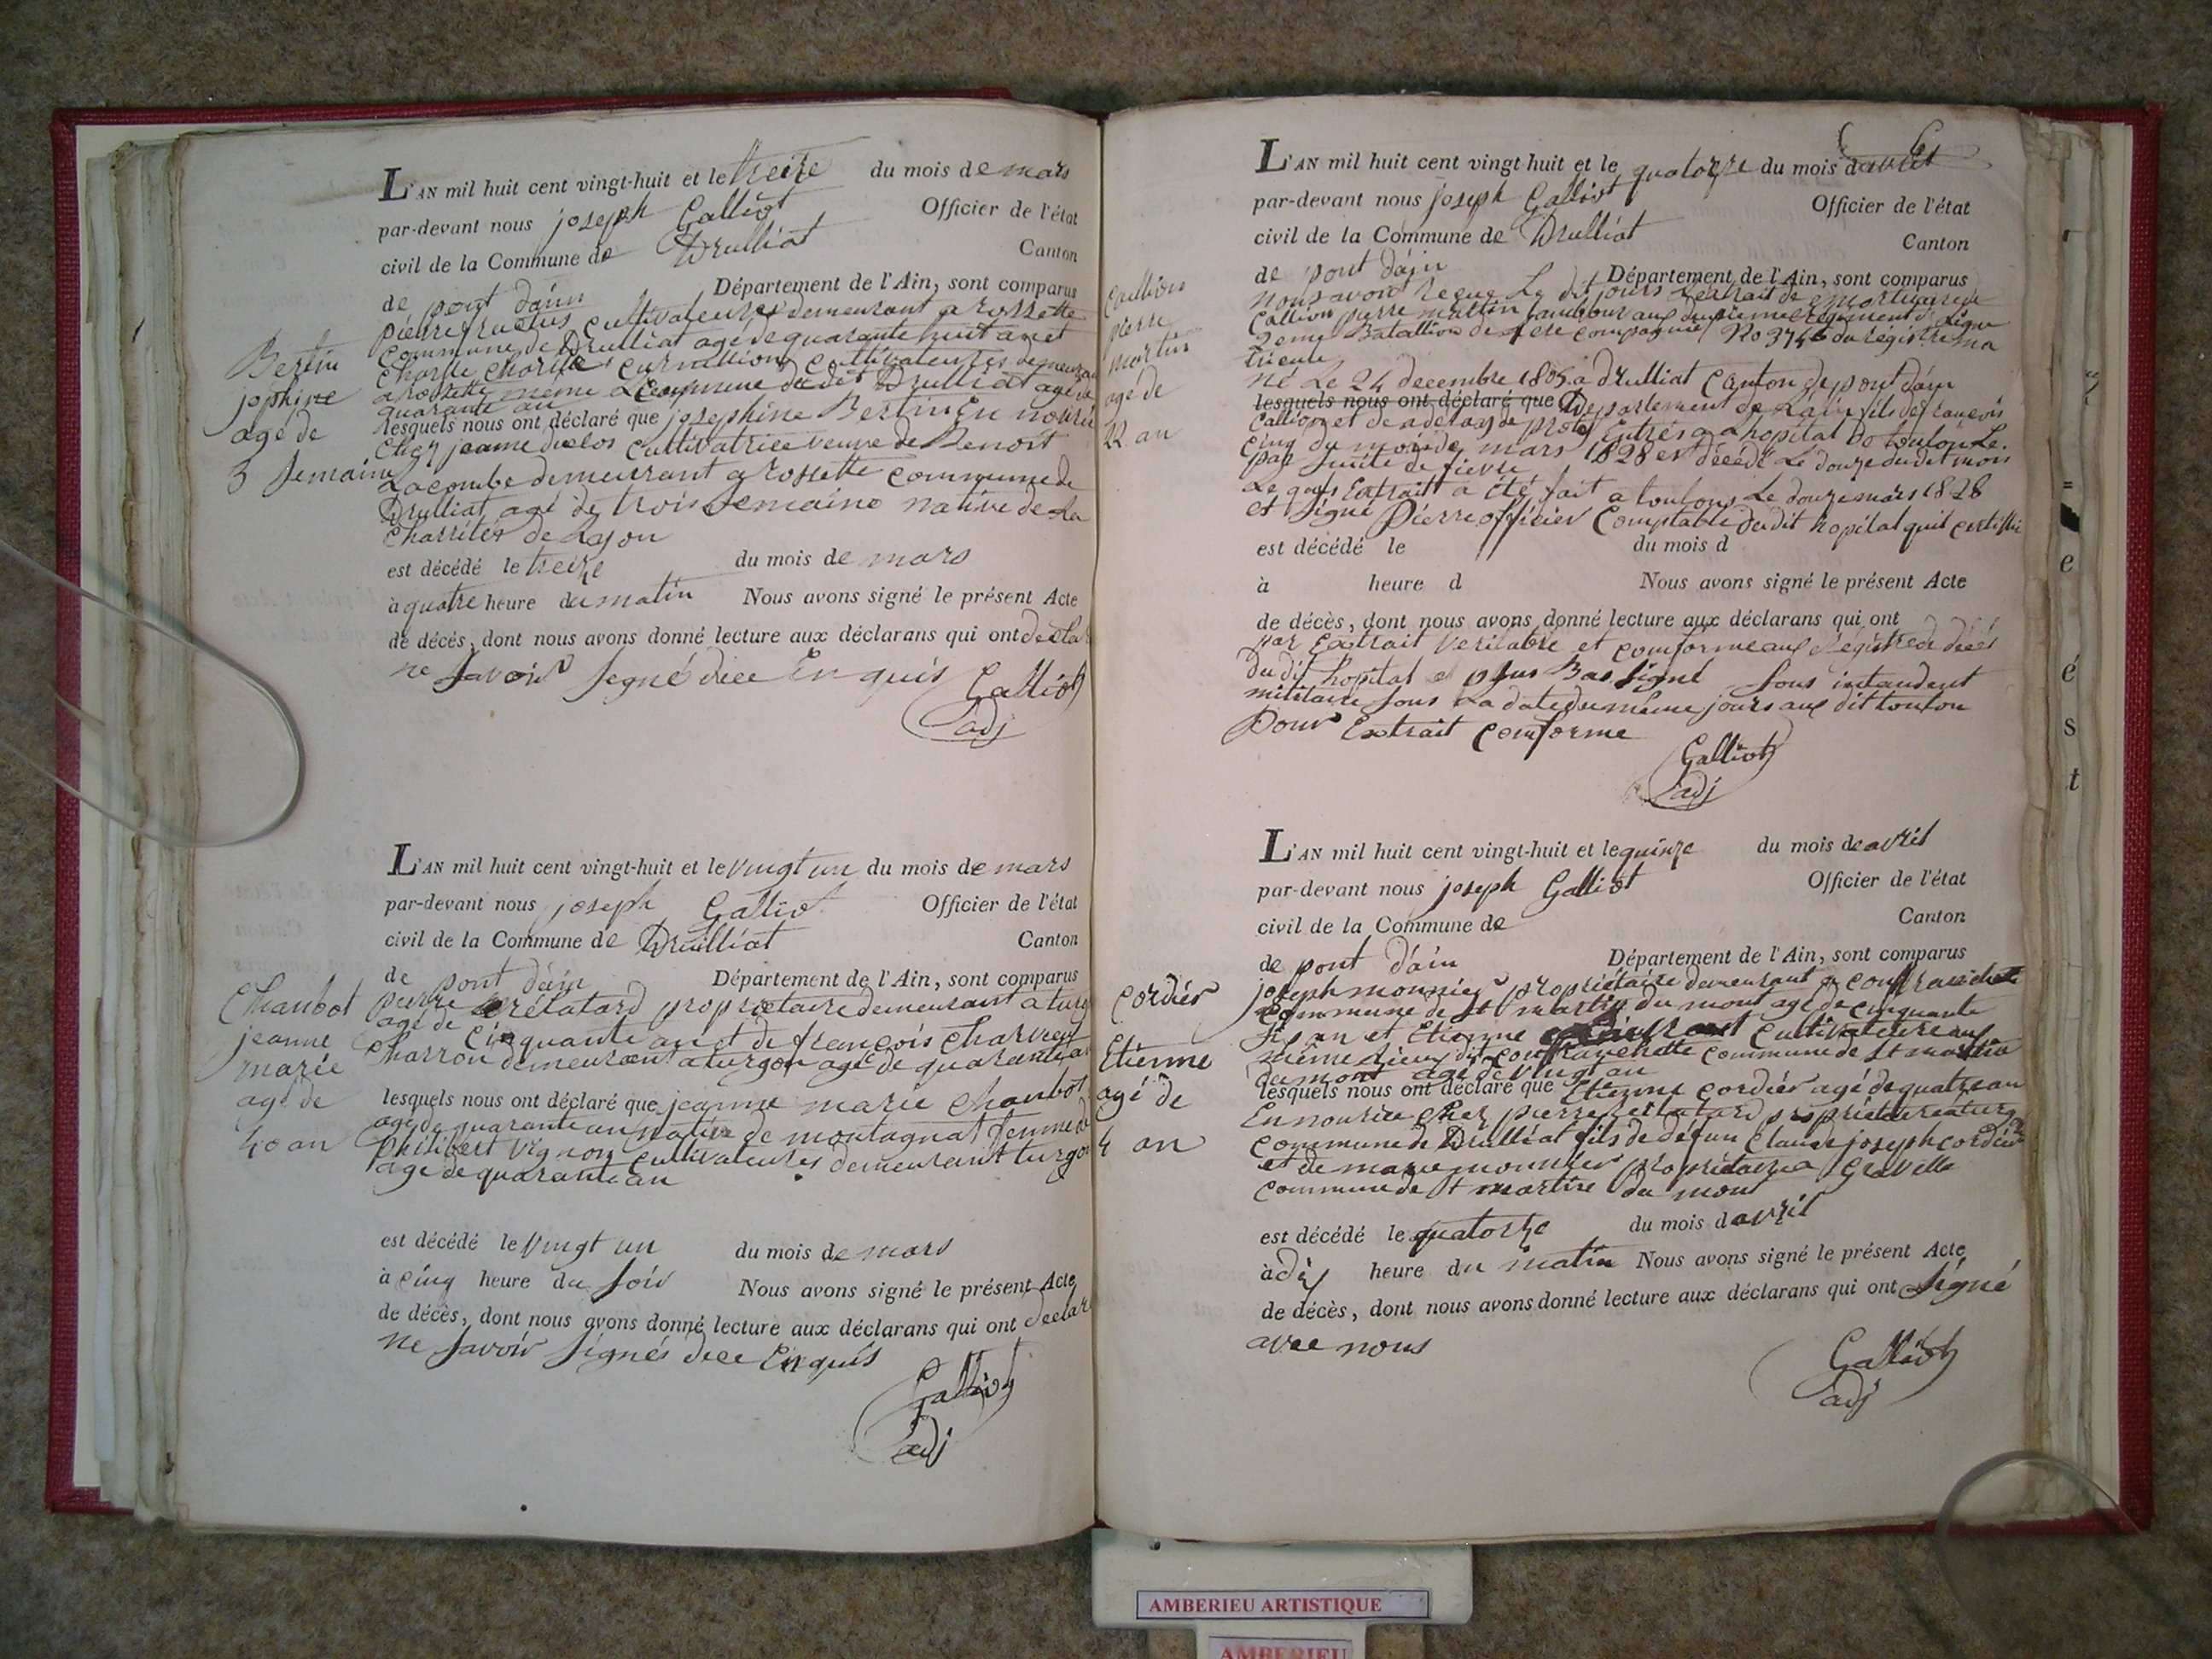 L'AN mil huit cent vingt-huit et le treize du mois de mars
par-devant nous joseph Galliot Officier de l'état
civil de la Commune de Drulliat Canton
de pont dáin Département de l'Ain, sont comparus
pierre fructus cultivateures demeurant a rossette
commune de Drulliat agé de quarante huit an et
Charle curvallion cultivateures demeurant
a rossette méme commune de Drulliat agé de
quarante an
lesquels nous ont déclaré que josephine Bertin en nourice
Chez jeanne duclos cultivatrice veuve de Benoit
Lacombe demeurant a rossette commune de
Drulliat agé de trois semaine native de La
Charrités de Lyon
est décédé le treize du mois de mars
à quatre heure du matin Nous avons signé le présent Acte
de décès, dont nous avons donné lecture aux déclarans qui ont decla
ne savoir segné dice En quis Galliot
adj
Bertin
jophine
agé de
3 semaine
L'AN mil huit cent vingt-huit et le vingt un du mois de mars
par-devant nous joseph Galliot Officier de l'état
civil de la Commune de Drulliat Canton
de pont dáin Département de l'Ain, sont comparus
pierre rélatard propriétaire demeurant a turg
agé de cinquante an et de françois Charvet
Charron demeurant a turgon agé de quarante an
lesquels nous ont déclaré que jeanne marie Chanbot
agé de quarante an native de montagnat femme d
philibert vignon cultivateures demeurant turgon
agé de quarante an
est décédé le vingt un du mois de mars
à cinq heure du soir Nous avons signé le présent Acte
de décès, dont nous avons donné lecture aux déclarans qui ont declar
ne savoir signés dice Enquis
Galliot
adj
Chanbot
jeanne
marie
agé de
40 an
L'AN mil huit cent vingt-huit et le quatorze du mois d avril
par-devant nous joseph Galliot Officier de l'état
civil de la Commune de Drulliat Canton
de pont dáin Département de l'Ain, sont comparus
nous avont reçue Le dit jours Lextrait de mortuaire de
Callion pierre martin tambour aux deuxieme régiment de Ligne
2eme Batallion de 1ere compagnie No 3746 du régistre ma
tricule
né Le 24 decembre 1805 a drulliat Canton de pont dáin
lesquels nous ont déclaré que Département de Láin fils de françois
Callion et de adelayde prost Entrés a Lhopital de toulon Le
cinq du mois de mars 1828 et décédé Le douze dudet mois
par suite de fievre
Le quels Extrait a été fait a toulons Le douze mars 1828
et signé Pierre officier Comptable du dit hopital quit certifie
est décédé le du mois d
à heure d Nous avons signé le présent Acte
de décès, dont nous avons donné lecture aux déclarans qui ont
par Extrait veritable et conforme aux Régistre de décés
du dit hopital et plus Bas signé sous intandent
militaire sous La date du méme jours aux dit toulon
Pour Extrait conforme
Galliot
adj
Callion
pierre
martin
agé de
22 an
L'AN mil huit cent vingt-huit et le quinze du mois de avril
par-devant nous joseph Galliot Officier de l'état
civil de la Commune de Canton
de pont dáin Département de l'Ain, sont comparus
joseph monnier propriétaire demeurant a confranchette
commune de st martin du mont agé de cinquante
six an et Etienne cultivateure aux
méme Lieux dit confranchette commune de st martin
du mont agé de vingt an
lesquels nous ont déclaré que Etienne cordier agé de quatre an
En nourice chez pierre rellatard propriétaire a turg
commune de Drulliat fils de défun Claude joseph cordier
et de marie monnier propriétaire a Gravelle
commune de st martin du mont
est décédé le quatorze du mois d avril
à dix heure du matin Nous avons signé le présent Acte
de décès, dont nous avons donné lecture aux déclarans qui ont signé
avec nous
Galliot
adj
cordier
Etienne
agé de
4 an
e
é
s
t
AMBERIEU ARTISTIQUE
AMBERIEU